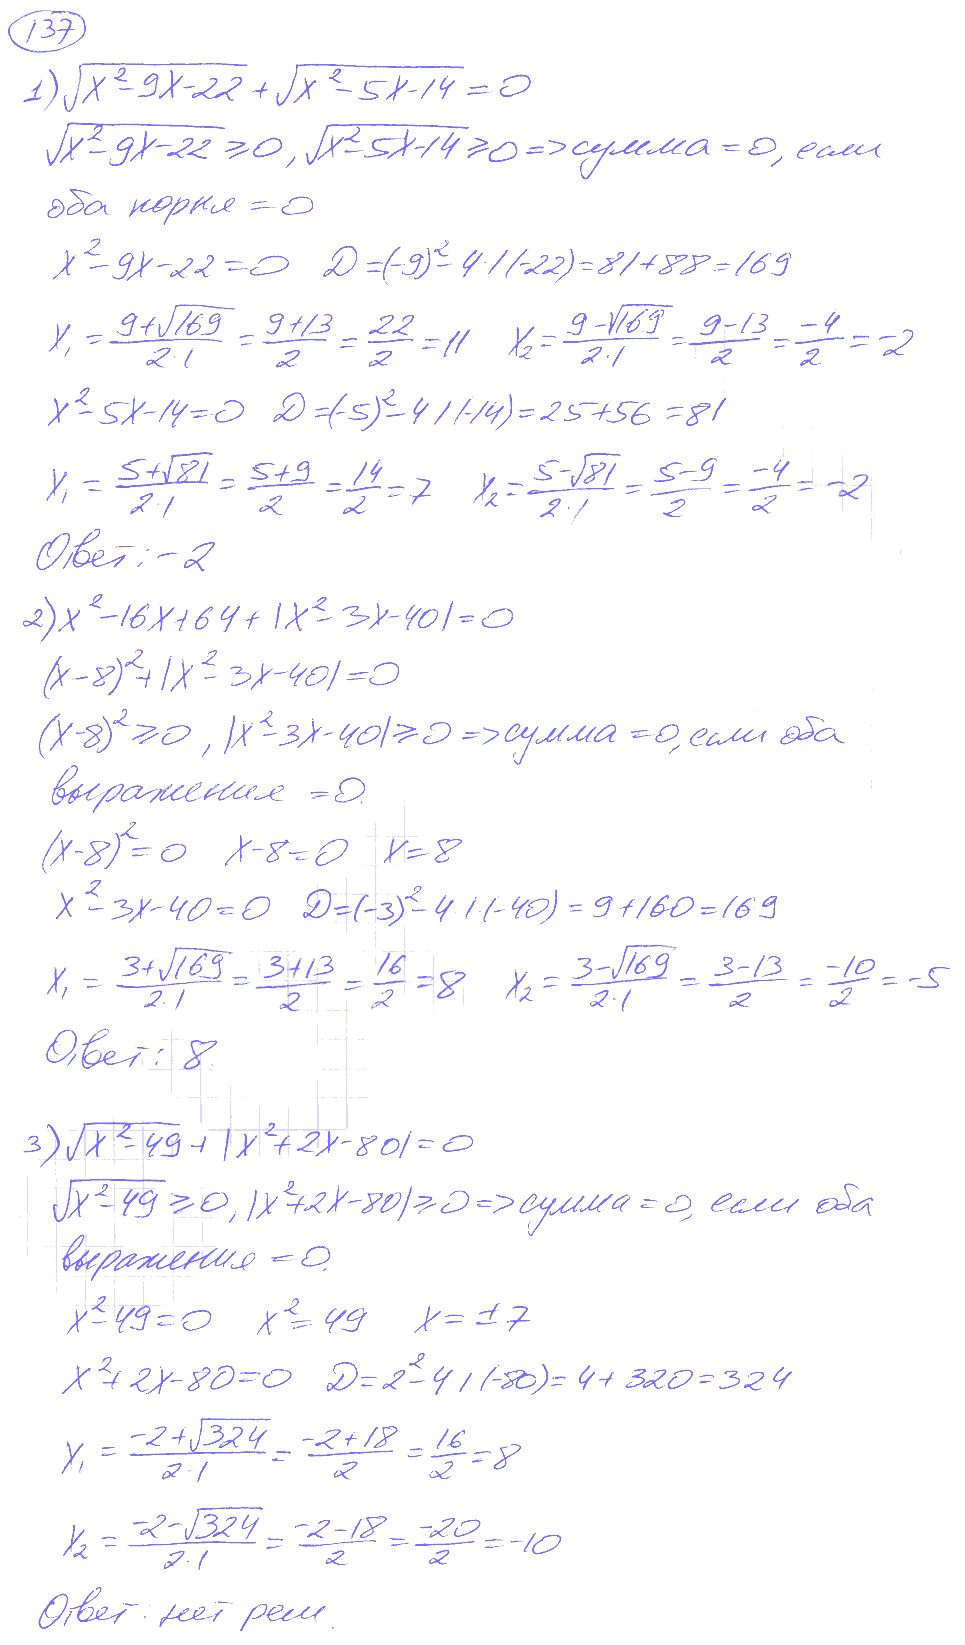 137
1) √(x²-9x-22) + √(x²-5x-14) = 0
√(x²-9x-22) ≥ 0, √(x²-5x-14) ≥ 0 => сумма = 0, если
оба корня = 0
x²-9x-22=0 D=(-9)²-4·1·(-22)=81+88=169
x₁ = (9+√169)/(2·1) = (9+13)/2 = 22/2 = 11 x₂ = (9-√169)/(2·1) = (9-13)/2 = -4/2 = -2
x²-5x-14=0 D=(-5)²-4·1·(-14)=25+56=81
x₁ = (5+√81)/(2·1) = (5+9)/2 = 14/2 = 7 x₂ = (5-√81)/(2·1) = (5-9)/2 = -4/2 = -2
Ответ: -2
2) x²-16x+64+|x²-3x-40|=0
(x-8)²+|x²-3x-40|=0
(x-8)² ≥ 0, |x²-3x-40| ≥ 0 => сумма = 0, если оба
выражения = 0.
(x-8)²=0 x-8=0 x=8
x²-3x-40=0 D=(-3)²-4·1·(-40)=9+160=169
x₁ = (3+√169)/(2·1) = (3+13)/2 = 16/2 = 8 x₂ = (3-√169)/(2·1) = (3-13)/2 = -10/2 = -5
Ответ: 8.
3) √(x²-49) + |x²+2x-80| = 0
√(x²-49) ≥ 0, |x²+2x-80| ≥ 0 => сумма = 0, если оба
выражения = 0.
x²-49=0 x²=49 x=±7
x²+2x-80=0 D=2²-4·1·(-80)=4+320=324
x₁ = (-2+√324)/(2·1) = (-2+18)/2 = 16/2 = 8
x₂ = (-2-√324)/(2·1) = (-2-18)/2 = -20/2 = -10
Ответ: нет реш.